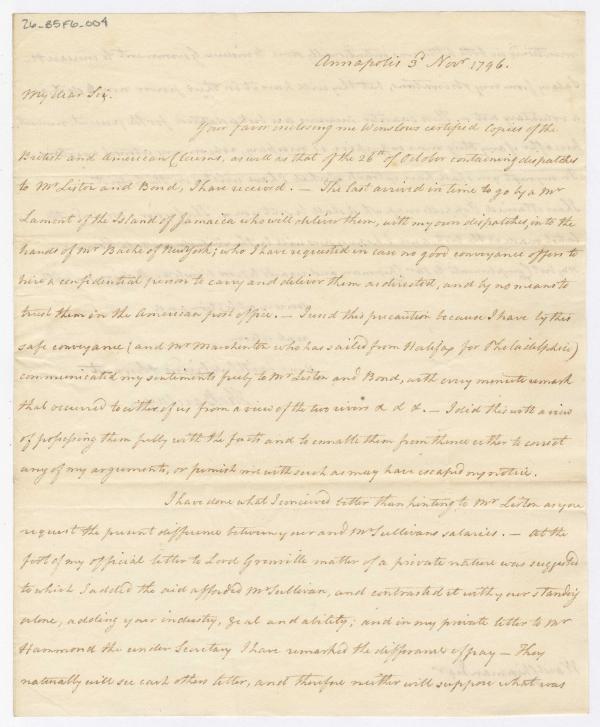 26-B5F6-004
Annapolis 3d Novr 1796.
My dear Sir.
Your favor inclosing me Winslows certified Copies of the
British and American Claims, as well as that of the 26th of October containing dispatches
to Mr Liston and Bond, I have received. — The last arrived in time to go by a Mr
Lamont of the Island of Jamaica who will deliver them, with my own dispatches, into the
hands of Mr Bache of New York; who I have requested in case no good conveyance offers to
hire a confidential person to carry and deliver them as directed, and by no means to
trust them in the American post office. — I used this precaution because I have by this
safe conveyance (and Mr Marchinton who has sailed from Halifax for Philadelphia)
communicated my sentiments freely to Mr Liston and Bond, with every minute remark
that occurred to either of us from a view of the two rivers & & &. — I did this with a view
of possessing them fully with the facts and to enable them from thence either to correct
any of my arguments, or furnish me with such as may have escaped my notice.
I have done what I conceived better than hinting to Mr Liston as you
request the present difference between your and Mr Sullivans salaries. — At the
foot of my official letter to Lord Grenville matter of a private nature was suggested
to which I added the aid afforded Mr Sullivan, and contrasted it with your standing
alone, adding your industry, zeal and ability; and in my private letter to Mr
Hammond the under Secretary I have remarked the difference of pay — They
naturally will see each others letter, and therefore neither will suppose what was